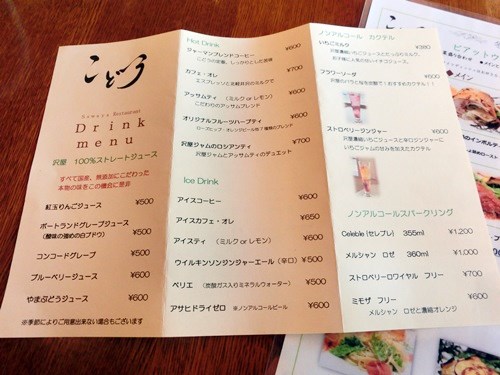 こどう
Sawaya Restaurant
Drink
menu
沢屋 100%ストレートジュース
すべて国産、無添加にこだわった
本物の味をこの機会に是非
紅玉りんごジュース ¥500
ポートランドグレープジュース ¥500
(酸味の強めの白ブドウ)
コンコードグレープ ¥500
ブルーベリージュース ¥600
やまぶどうジュース ¥600
※季節によりご用意出来ない場合もございます
Hot Drink
ジャーマンブレンドコーヒー ¥600
こどうの定番、しっかりとした苦味
カフェ・オレ ¥700
エスプレッソと北軽井沢のミルクで
アッサムティ (ミルク or レモン) ¥600
こだわりのアッサムブレンド
オリジナルフルーツハーブティ ¥600
ローズヒップ・オレンジピール他7種類のブレンド
沢屋ジャムのロシアンティ ¥700
沢屋ジャムとアッサムティのデュエット
Ice Drink
アイスコーヒー ¥600
アイスカフェ・オレ ¥650
アイスティ (ミルク or レモン) ¥600
ウイルキンソンジンジャーエール(辛口) ¥500
ペリエ (炭酸ガス入りミネラルウォーター) ¥500
アサヒドライゼロ ※ノンアルコールビール ¥600
ノンアルコール カクテル
いちごミルク ¥380
フラワーソーダ ¥600
ストロベリージンジャー ¥600
沢屋濃縮いちごジュースと辛口ジンジャーに
いちごジャムの甘みを加えたカクテル
ノンアルコールスパークリング
Celeble (セレブレ) 355ml ¥1,200
メルシャン ロゼ 360ml ¥1,000
ストロベリーロワイヤル フリー ¥700
ミモザ フリー ¥600
メルシャン ロゼと濃縮オレンジ
こどう
メイン